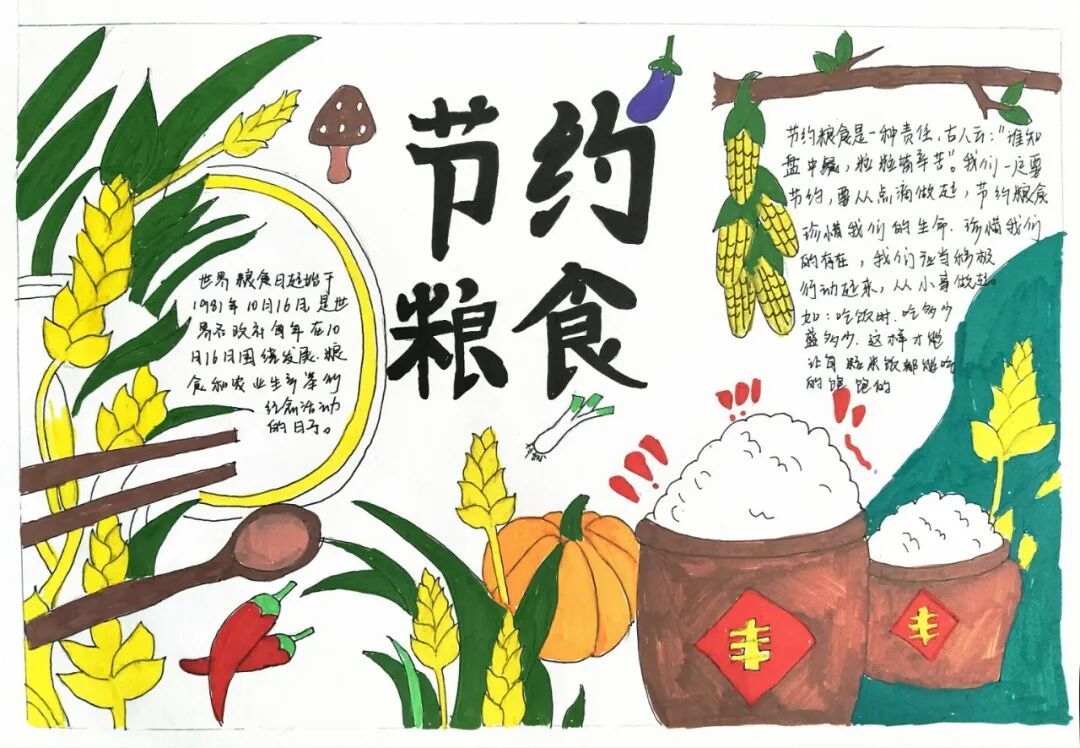 节约
粮食
世界粮食日起始于
1981年10月16日,是世
界各政府每年在10
月16日围绕发展粮
食和农业生产举行
纪念活动
的日子。
节约粮食是一种责任,古人云:“谁知
盘中餐,粒粒皆辛苦”。我们一定要
节约,要从点滴做起,节约粮食
珍惜我们的生命.珍惜我们
的存在,我们应当积极
行动起来,从小事做起。
如:吃饭时.吃多少
盛多少.这样才能
让每粒米饭都能吃
的饱饱的
丰
丰